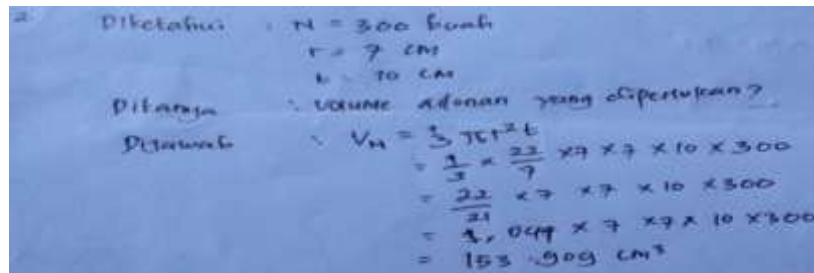 2. Diketahui : N = 300 buah
r = 7 cm
t = 10 cm
Ditanya : volume adonan yang diperlukan?
Dijawab : VN = 1/3 πr²t
= 1/3 × 22/7 × 7 × 7 × 10 × 300
= 22/21 × 7 × 7 × 10 × 300
= 1,047 × 7 × 7 × 10 × 300
= 153.909 cm³